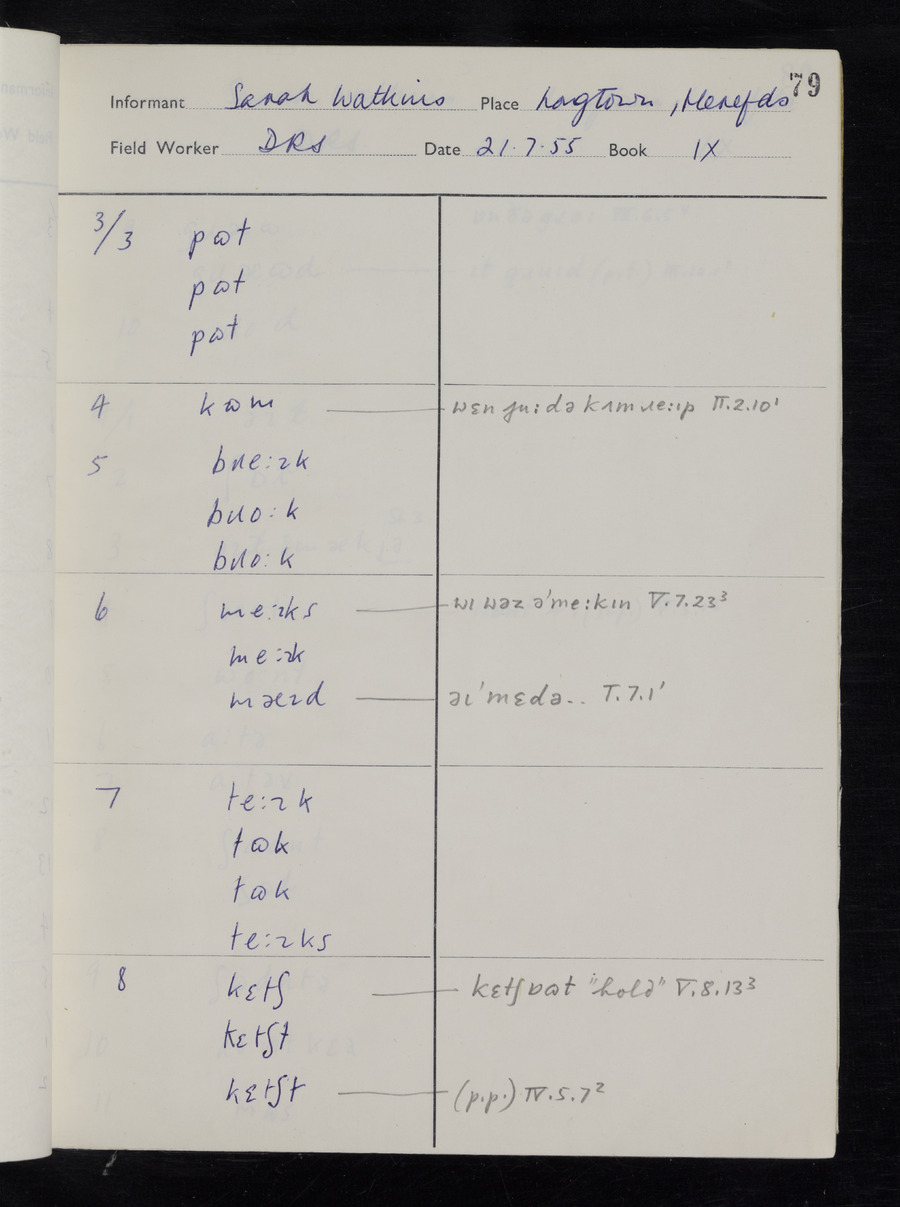 79
Informant Sarah Watkins Place Longtown, Herefds
Field Worker DRS Date 21.7.55 Book IX
3/3 pɷt
pɷt
pɷt
4 kɷm wɛn ju:də kʌmɹe:ɪp II.2.10¹
5 bɹe:ɪk
bɹo:k
bɹo:k
6 me:ɪks wɪ wəz ə'me:kɪn V.7.23³
me:ɪk
məeɪd əɪ'mɛdə.. I.7.1¹
7 te:ɪk
tɷk
tɷk
te:ɪks
8 kɛtʃ kɛtʃ "hold" V.8.13³
kɛtʃt
kɛtʃt (p.p.) IV.5.7²